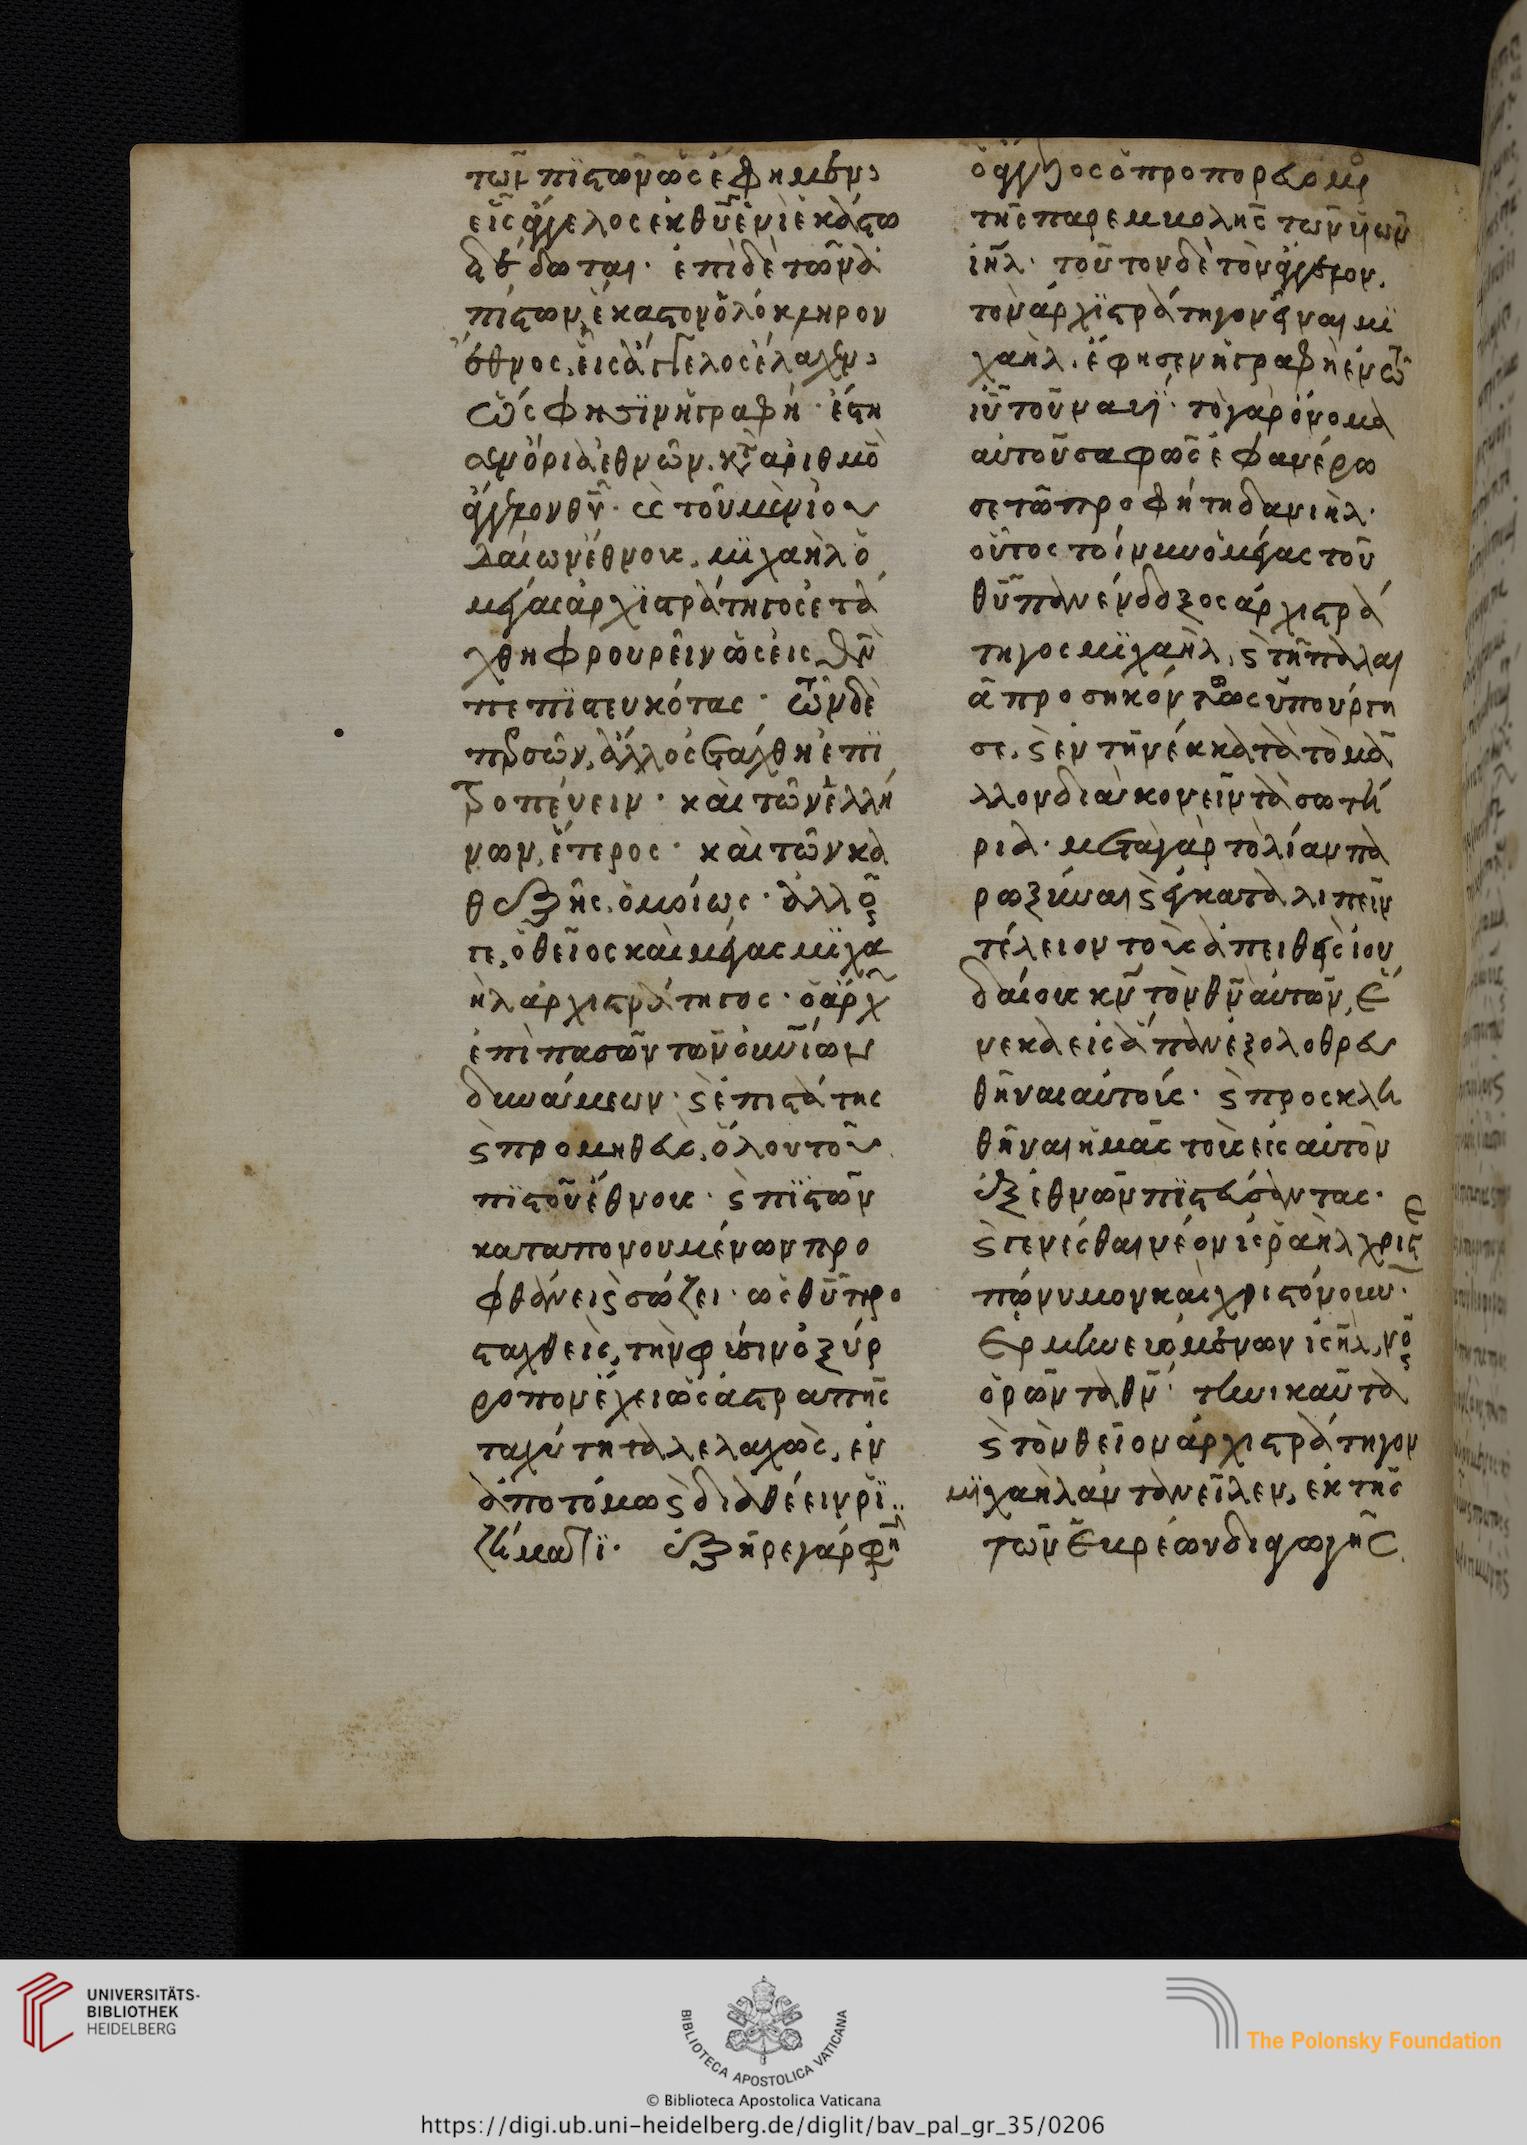 τῶν πϊστῶν ὡς ἔφημεν·
εἷς ἄγγελος ἐκ θῦ ἑνὶ ἑκάστω
δέδωται· ἐπὶ δὲ τῶν ἀ
πίστων, ἕκαστον ὁλόκληρον
ἔθνος, εἷς ἄγγελος ἔλαχεν·
ὥς φησϊν ἡ γραφή· ἔστη
σεν ὅρια ἐθνῶν, κτ ἀριθμὸ
ἀγγέλων θῦ·
λαίων ἔθνους, μϊχαὴλ ὁ
μέγας ἀρχϊστράτηγος ἐτά
χθη φρουρεῖν ὡς εἰς θν
πεπϊστευκότας· τῶν δὲ
περσῶν, ἄλλος ἐτάχθη ἐπϊ
τροπεύειν· καὶ τῶν ἑλλή
νων, ἕτερος· καὶ τῶν κα
θεξῆς, ὁμοίως· ἀλλ
ὁ θεῖος καὶ μέγας μϊχα
ὴλ ἀρχιστράτηγος· ὁ ἄρχ
ἐπὶ πασῶν τῶν οὐνίων
δυνάμεων· ς ἐπιστάτης
ς προμηθεὺς, ὅλου τοῦ
πϊστοῦ ἔθνους· ς πϊστῶν
καταπονουμένων προ
φθάνει ς σώζει· ὡς θῦ προ
σταχθεὶς, τὴν φύσιν ὀξύρ
ροπον ἔχει ὡς ἀστραπῆς
ταχύτητα λελαχὼς, ἐν
ἀποτόμω ς διαθέειν ῥϊ
ζήματϊ· ἐξῆρε γάρ φη
ὁ ἄγγελος ὁ προπορευόμε
τῆς παρεμβολῆς τῶν υἱων
ιηλ· τοῦτον δὲ τὸν ἄγγελον,
τὸν ἀρχϊστράτηγον εἶναι μϊ
χαὴλ, ἔφησεν ἡ γραφὴ ἐν τῶ
ιῦ τοῦ ναυῆ· τὸ γὰρ ὄνομα
αὐτοῦ σαφῶς ἐφανέρω
σε τῶ προφήτη δανιὴλ·
οὗτος τοίνυν ὁ μέγας τοῦ
θῦ πανένδοξος ἀρχιστρά
τηγος μϊχαὴλ, ς τῆ παλαι
ᾶ προσηκόντως ὑπούργη
σε, ς ἐν τῆ νέα κατὰ τὸ μᾶ
λλον διακονεῖν τὰ σωτή
ρια· μετὰ γὰρ τὸ λίαν πα
ροξύναι ς ἐγκαταλιπεῖν
τέλειον τοὺς ἀπειθεῖς ἰου
δαίους κν τὸν θν αὐτῶν, ἕ
νεκα εἰς ἅπαν ἐξολοθρευ
θῆναι αὐτούς· ς προσκλη
θῆναι ἡμᾶς τοὺς εἰς αὐτὸν
ἐξ ἐθνῶν πϊστεύσαντας·
ς γενέσθαι νέον ἰσραὴλ χριστε
πώνυμον καὶ χριστόνουν·
ἑρμηνευόμενον ιηλ, νοῦς
ὁρῶν τὸν θν· τηνικαῦτα
ς τὸν θεῖον ἀρχιστράτηγον
μϊχαὴλ αὐτὸν εἷλεν, ἐκ τῆς
τῶν ἑβρέων διαγωγῆς
UNIVERSITÄTS-
BIBLIOTHEK
HEIDELBERG
BIBLIOTECA APOSTOLICA VATICANA
The Polonsky Foundation
© Biblioteca Apostolica Vaticana
https://digi.ub.uni-heidelberg.de/diglit/bav_pal_gr_35/0206